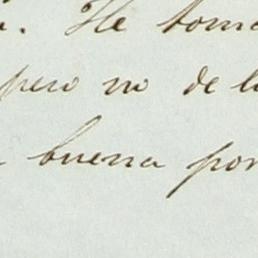 . He toma
pero no de l
buena por